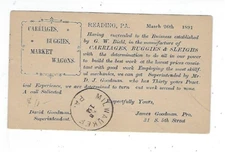 CARRIAGES,
BUGGIES,
MARKET
WAGONS.
READING, PA. March 20th 1891
Having succeeded to the Business established
by G. W. Biehl, in the manufacture of
CARRIAGES, BUGGIES & SLEIGHS
with the determination to do all in our power
to build the best work at the lowest prices consis-
tent with good work Employing the most skill
of mechanics, we can get Superintended by Mr.
D. J. Goodman, who has Thirty years Pract-
ical Experience, we are determined to turn out work Second to none
A call solicited
Respectfully Yours,
David Goodman, James Goodman Pro.
Superintendent. 31 S. 5th Street